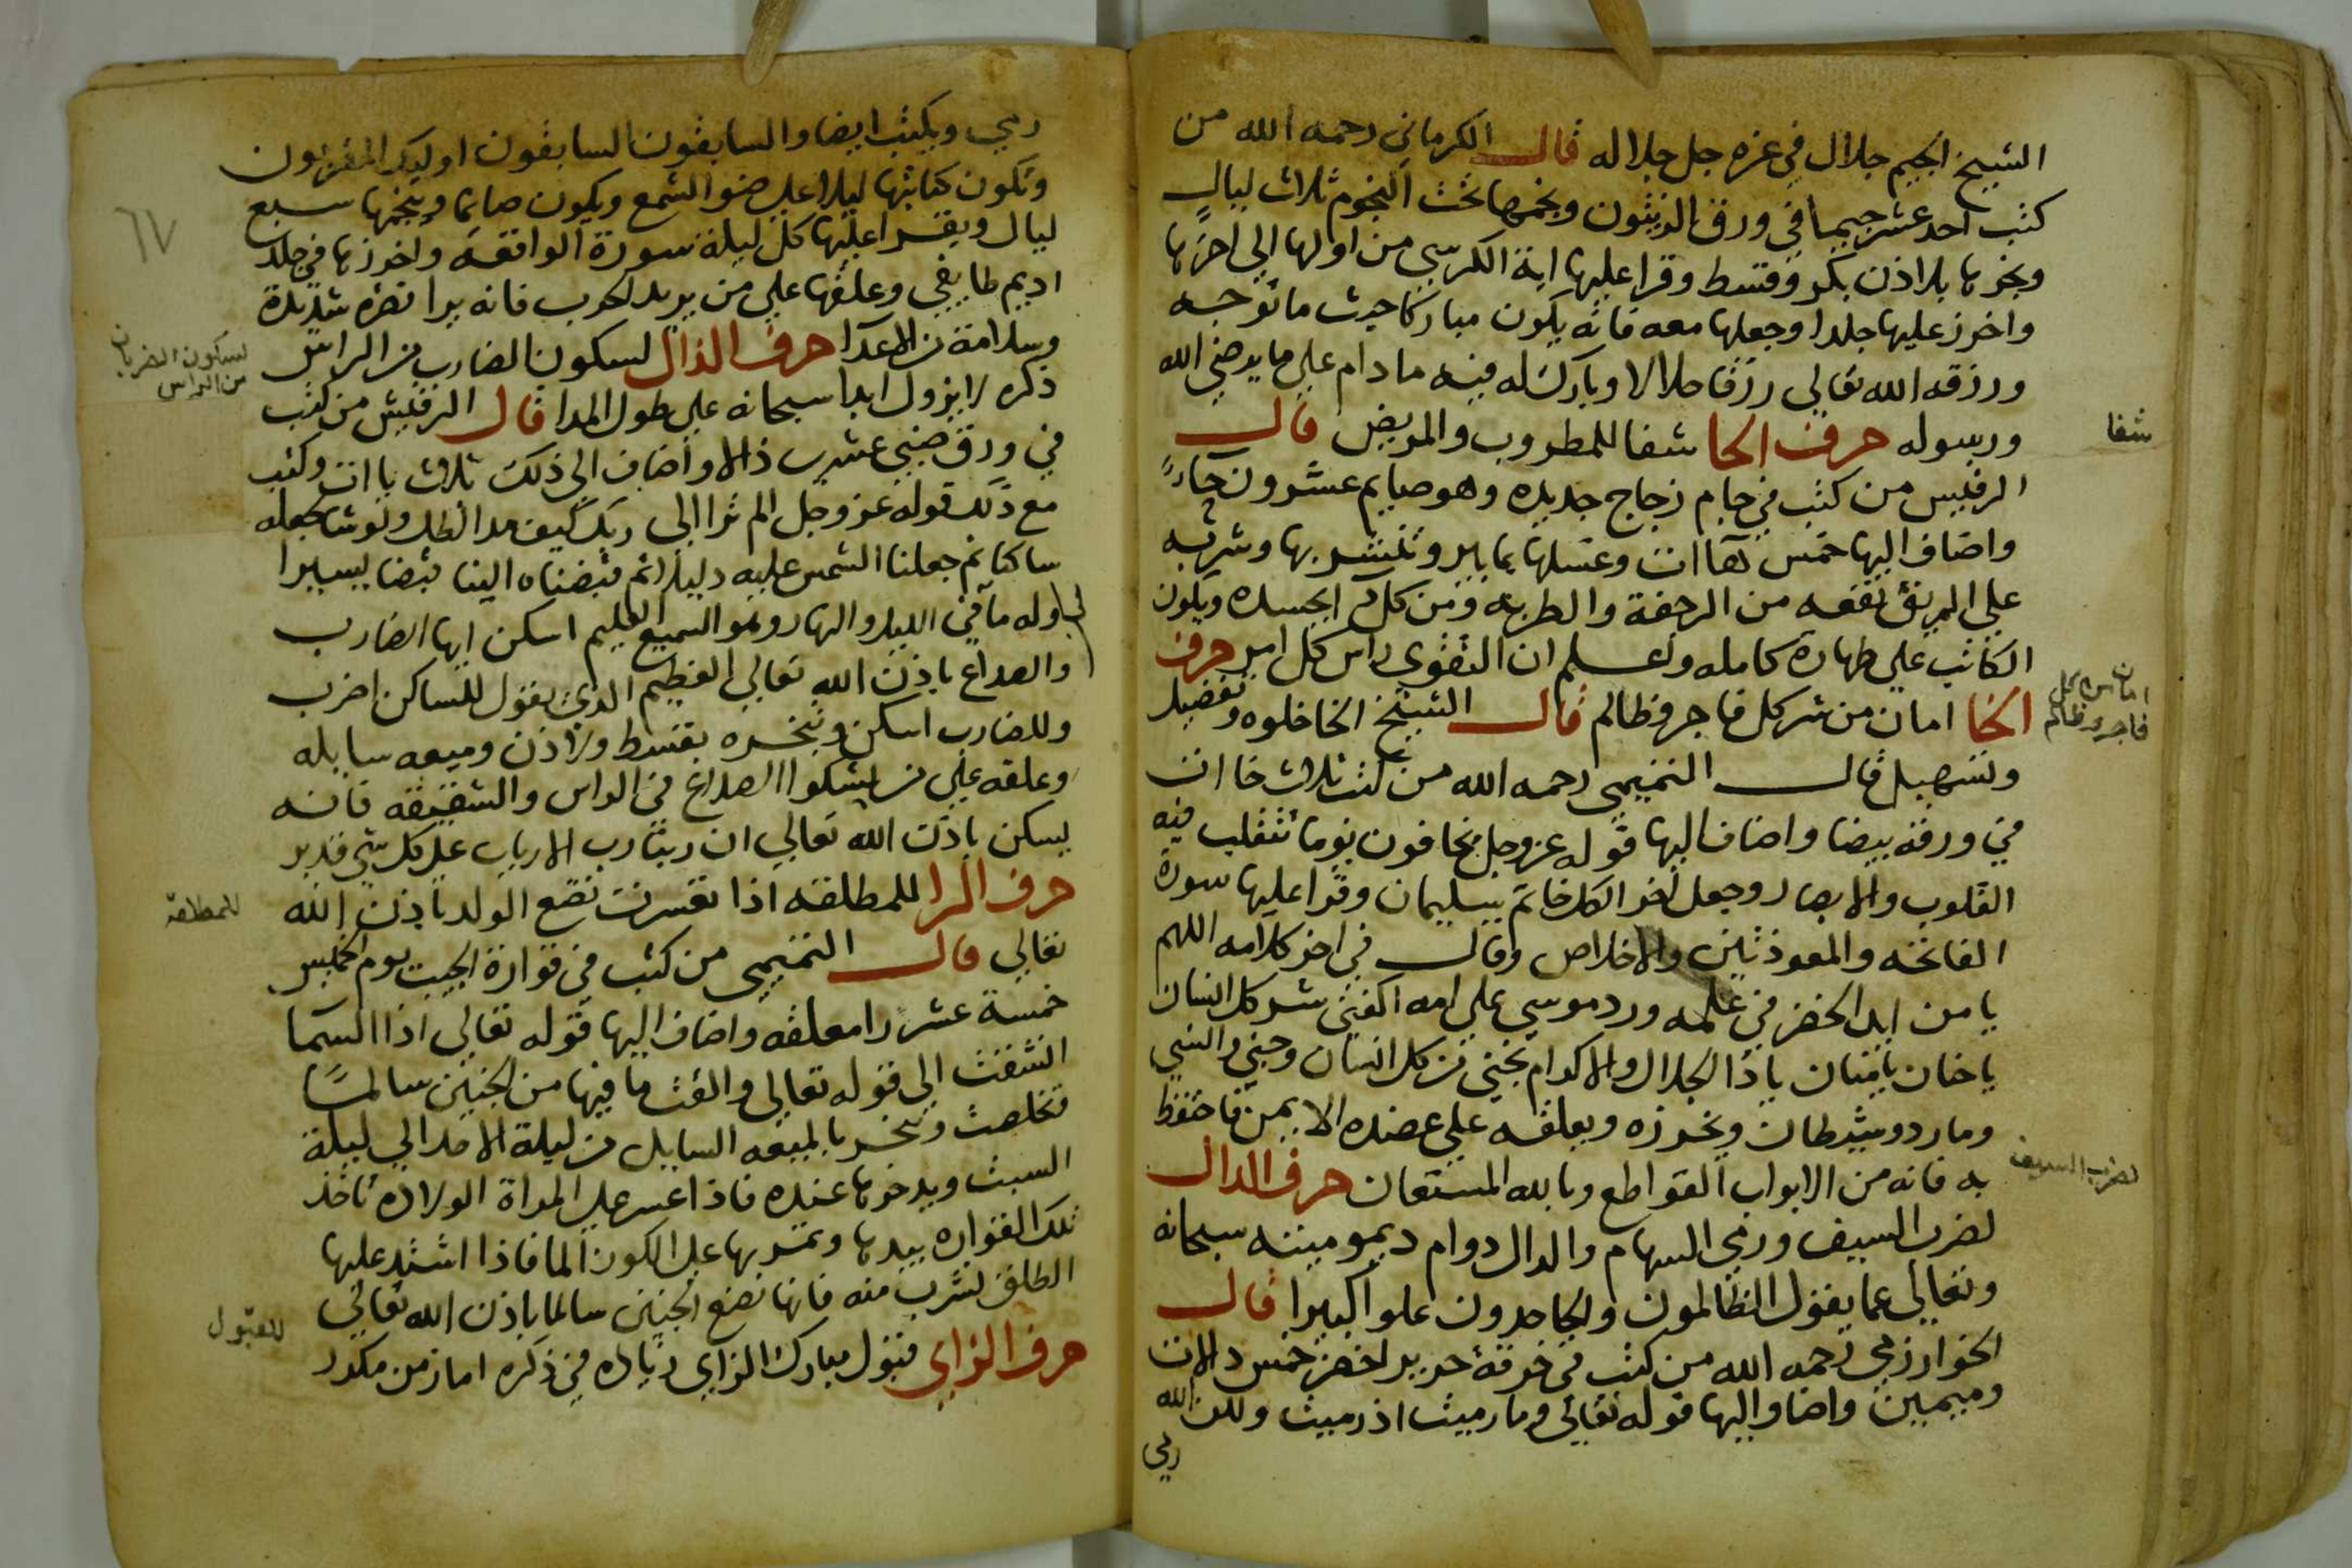 الشيخ الجيم جلال في عزه جل جلاله قال الكرماني رحمه الله من
كتب احد عشر جيما في ورق الزيتون ونجمها تحت النجوم ثلاث ليال
وبخرها بلاذن بكر وقسط وقرا عليها اية الكرسي من اولها الي اخرها
واخرز عليها جلدا وجعلها معه فانه يكون مباركا حيث ما توجه
ورزقه الله تعالي رزقا حلالا وبارك له فيه ما دام علي ما يرضي الله
ورسوله حرف الحا شفا للمطروب والمريض قال
شفا
الرقليس من كتب في جام زجاج جديده وهو صايم عشرون حاءً
واضاف اليها خمس هاآت وغسلها بما بير وشربه
علي الريق نفعه من الرجفة والطربه ومن كل الم الجسده ويكون
الكاتب علي طهارة كامله واعلم ان التقوي راس كل امر حرف
الخا امان من شر كل فاجر وظالم قال الشيخ الخا خلوه وتفضيل
امان من كل
فاجر وظالم
وتسهيل قال التميمي رحمه الله من كتب ثلاث خاات
في ورقة بيضا واضاف اليها قوله عز وجل يخافون يوما تتقلب فيه
القلوب والابصار وجعل اخر الكل خاتم سليمان وقرا عليها سورة
الفاتحه والمعوذتين والاخلاص وقال في اخر كلامه اللهم
يا من ايد الخضر في علمه ورد موسي علي امه اكفني شر كل انسان
يا حنان يا منان يا ذا الجلال والاكرام نجني من كل انسان وجني
ومارد وشيطان ويخرزه ويعلقه علي عضده الايمن فاحتفظ
به فانه من الابواب القواطع وبالله المستعان حرف الدال
لضرب السيف
لضرب السيف ورمي السهام والدال دوام ديموميته سبحانه
وتعالي عما يقول الظالمون والجاحدون علوا كبيرا قال
الخوارزمي رحمه الله من كتب في خرقة حرير اخضر خمس دالات
وميمين واضاف اليها قوله تعالي وما رميت اذ رميت ولكن الله
رمي
رمي ويكتب ايضا والسابقون السابقون اوليك المقربون
٦٧
وتكون كتابتها ليلا علي ضو الشمع ويكون صايما وينجمها سبع
ليال ويقرا عليها كل ليلة سورة الواقعه واخرزها في جلد
اديم طايفي وعلقها علي من يريد الحرب فانه يرا نصره شديدة
وسلامة من الاعدا حرف الذال لسكون الضارب من الراس
لسكون الضربان
من الراس
ذكره لا يزول ابدا سبحانه علي طول المدا قال الرقليش من كتب
في ورق صيني عشرين ذالا واضاف الي ذلك ثلاث يا ات وكتب
مع ذلك قوله عز وجل الم ترا الي ربك كيف مد الظل ولو شا لجعله
ساكنا ثم جعلنا الشمس عليه دليلا ثم قبضناه الينا قبضا يسيرا
وله ما في الليل والنهار وهو السميع العليم اسكن ايها الضارب
والصداع باذن الله تعالي العظيم الذي يقول للساكن اضرب
وللضارب اسكن وتبخره بقسط ولاذن وميعه سايله
وعلقه علي من يشكوا الصداع في الراس والشقيقه فانه
يسكن باذن الله تعالي ان ربنا رب الارباب علي كل شي قدير
حرف الرا للمطلقه اذا تعسرت تضع الولد باذن الله
للمطلقة
تعالي قال التميمي من كتب في قوارة الجيب يوم الخميس
خمسة عشر را معلقه واضاف اليها قوله تعالي اذا السما
انشقت الي قوله تعالي والقت ما فيها من الجنين سالمًا
وتخلصت وتبخر بالميعه السايل من ليلة الاحد الي ليلة
السبت ويدخرها عنده فاذا عسر علي المراة الولاده تاخذ
تلك القواره بيدها وتمر بها علي الكوز الما فاذا اشتد عليها
الطلق تشرب منه فانها تضع الجنين سالما باذن الله تعالي
حرف الزاي قبول مبارك الزاي زياده في ذكره امان من مكدر
للقبول